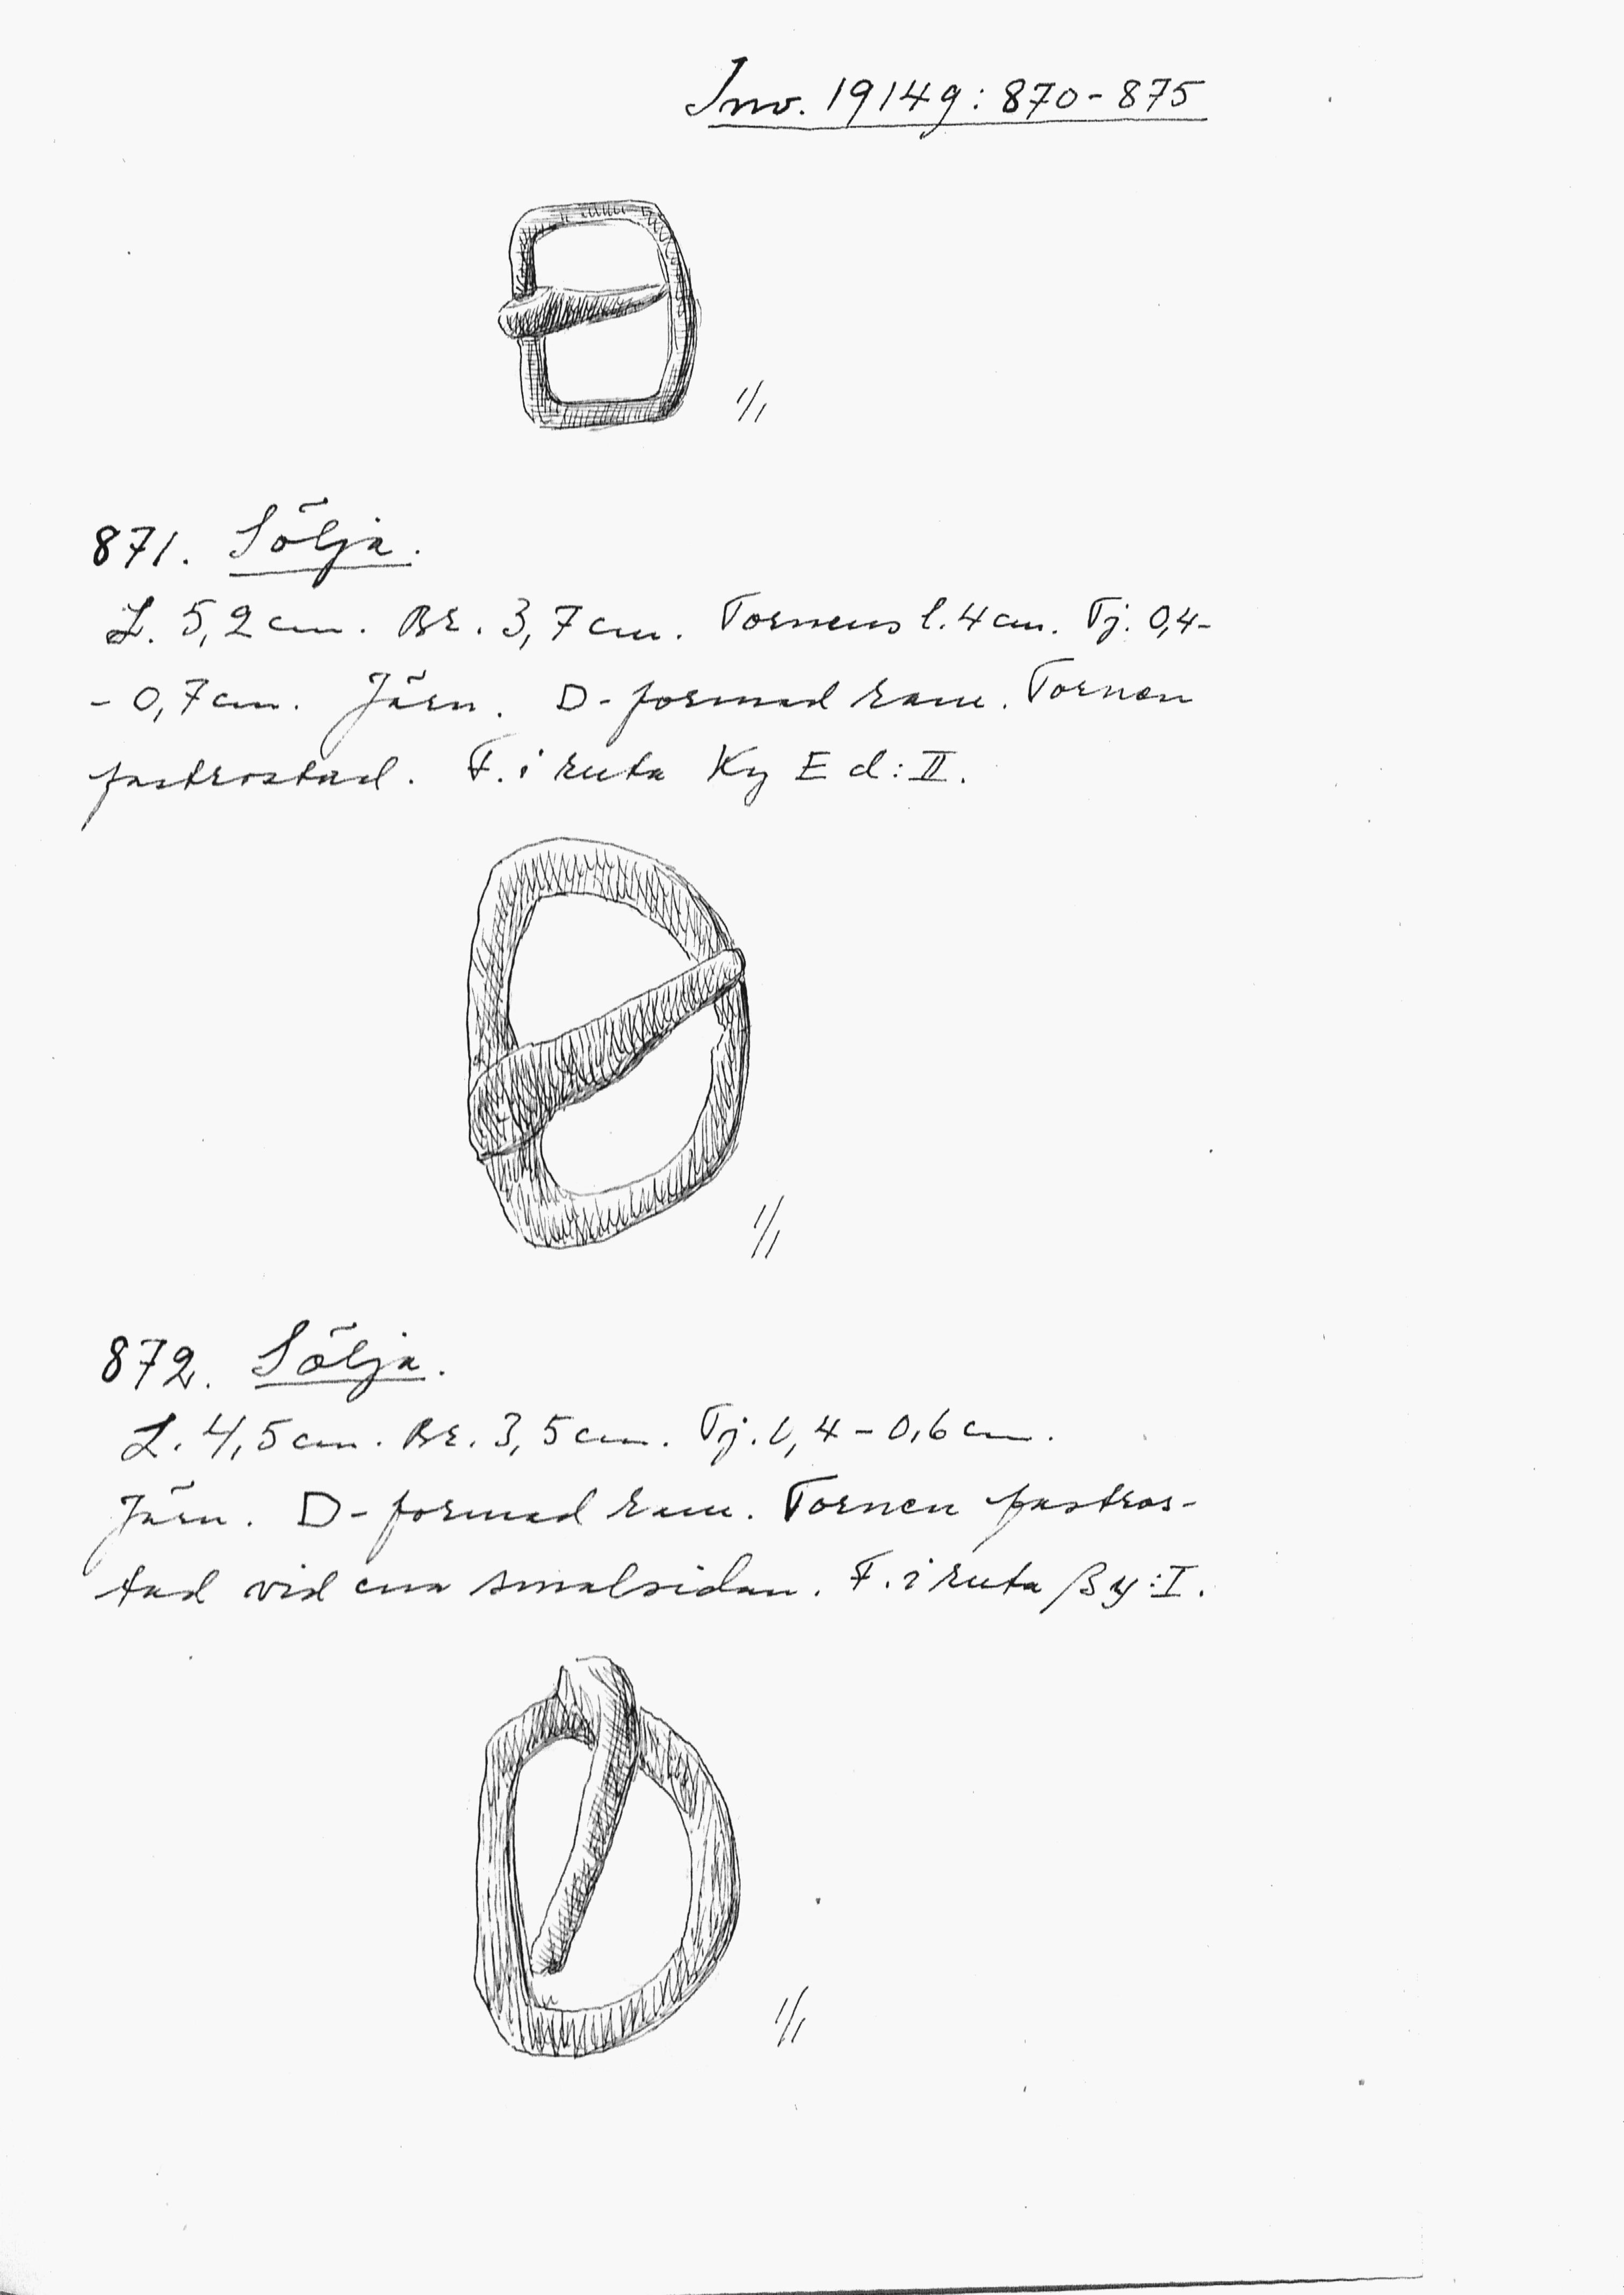 Inv. 19149: 870-875
1/1
871. Sölja.
L. 5,2 cm. Br. 3,7 cm. Tornens l. 4 cm. Tj. 0,4-
- 0,7 cm. Järn. D-formad ram. Tornen
fastrostad. F. i ruta Ky E d: II.
1/1
872. Sölja.
L. 4,5 cm. Br. 3,5 cm. Tj. 0,4 - 0,6 cm.
Järn. D-formad ram. Tornen fastros-
tad vid ena smalsidan. F. i ruta β y: I.
1/1